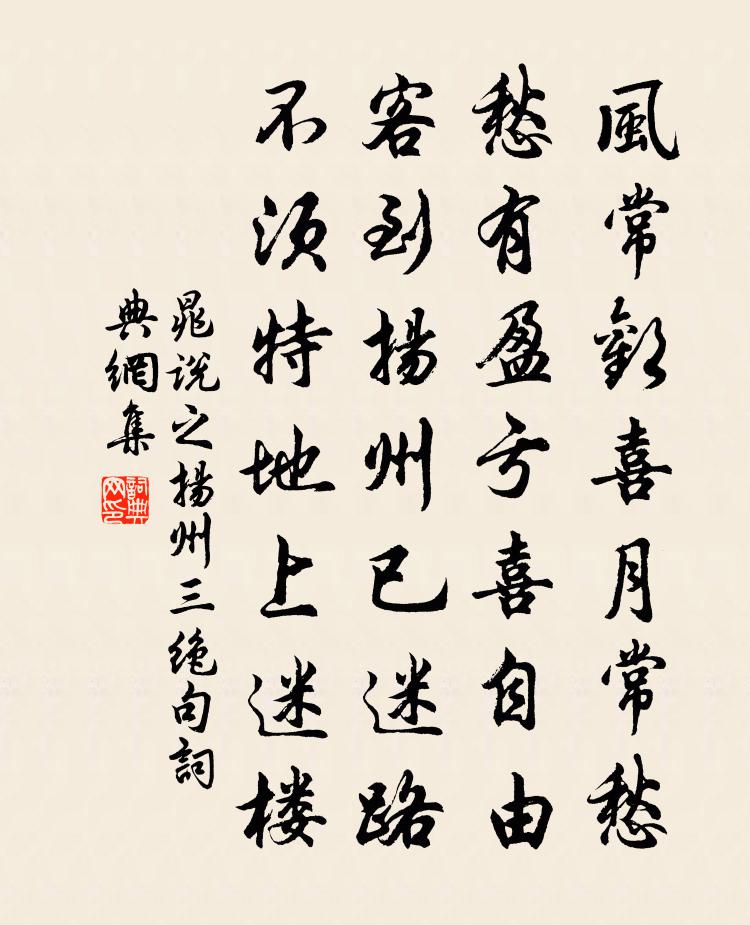 風常歡喜月常愁
愁有盈亏喜自由
客到揚州已迷路
不須特地上迷楼
晁説之揚州三絶句詞
典網集
詞典
网印